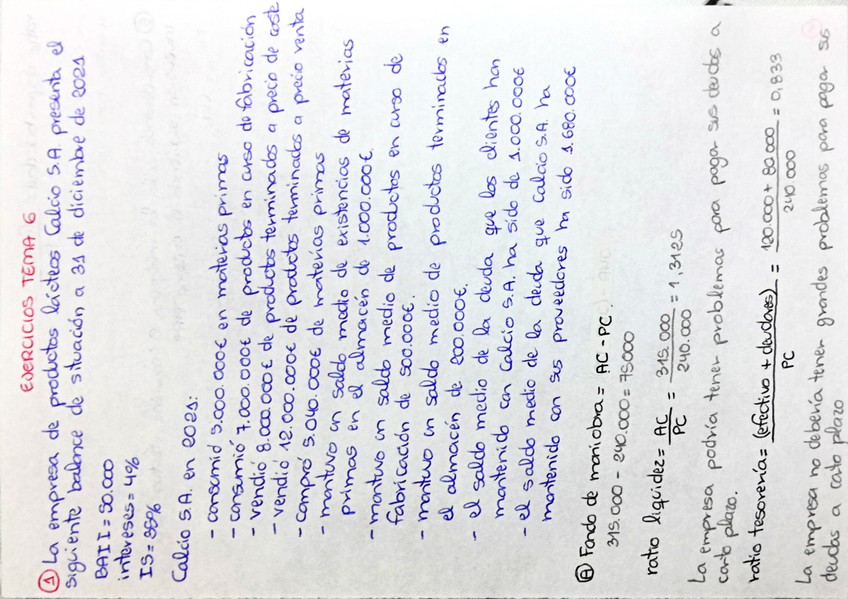 EJERCICIOS TEMA 6
① La empresa de productos lácteos Calcio S.A. presenta el
siguiente balance de situación a 31 de diciembre de 2021
BAII = 50.000
intereses = 4%
IS = 35%
Calcio S.A. en 2021:
- consumió 5.000.000€ en materias primas
- consumió 7.000.000€ de productos en curso de fabricación
- vendió 8.000.000€ de productos terminados a precio de coste
- vendió 12.000.000€ de productos terminados a precio venta
- compró 5.040.000€ de materias primas
- mantuvo un saldo medio de existencias de materias
primas en el almacén de 1.000.000€.
- mantuvo un saldo medio de productos en curso de
fabricación de 500.000€.
- mantuvo un saldo medio de productos terminados en
el almacén de 200.000€.
- el saldo medio de la deuda que los clientes han
mantenido con Calcio S.A. ha sido de 1.000.000€
- el saldo medio de la deuda que Calcio S.A. ha
mantenido con sus proveedores ha sido 1.680.000€
Ⓐ Fondo de maniobra = AC - PC.
315.000 - 240.000 = 75000
ratio liquidez = AC / PC = 315.000 / 240.000 = 1,3125
La empresa podría tener problemas para pagar sus deudas a
corto plazo.
ratio tesorería = (efectivo + deudores) / PC = 120.000 + 80 000 / 240 000 = 0,833
La empresa no debería tener grandes problemas para pagar sus
deudas a corto plazo